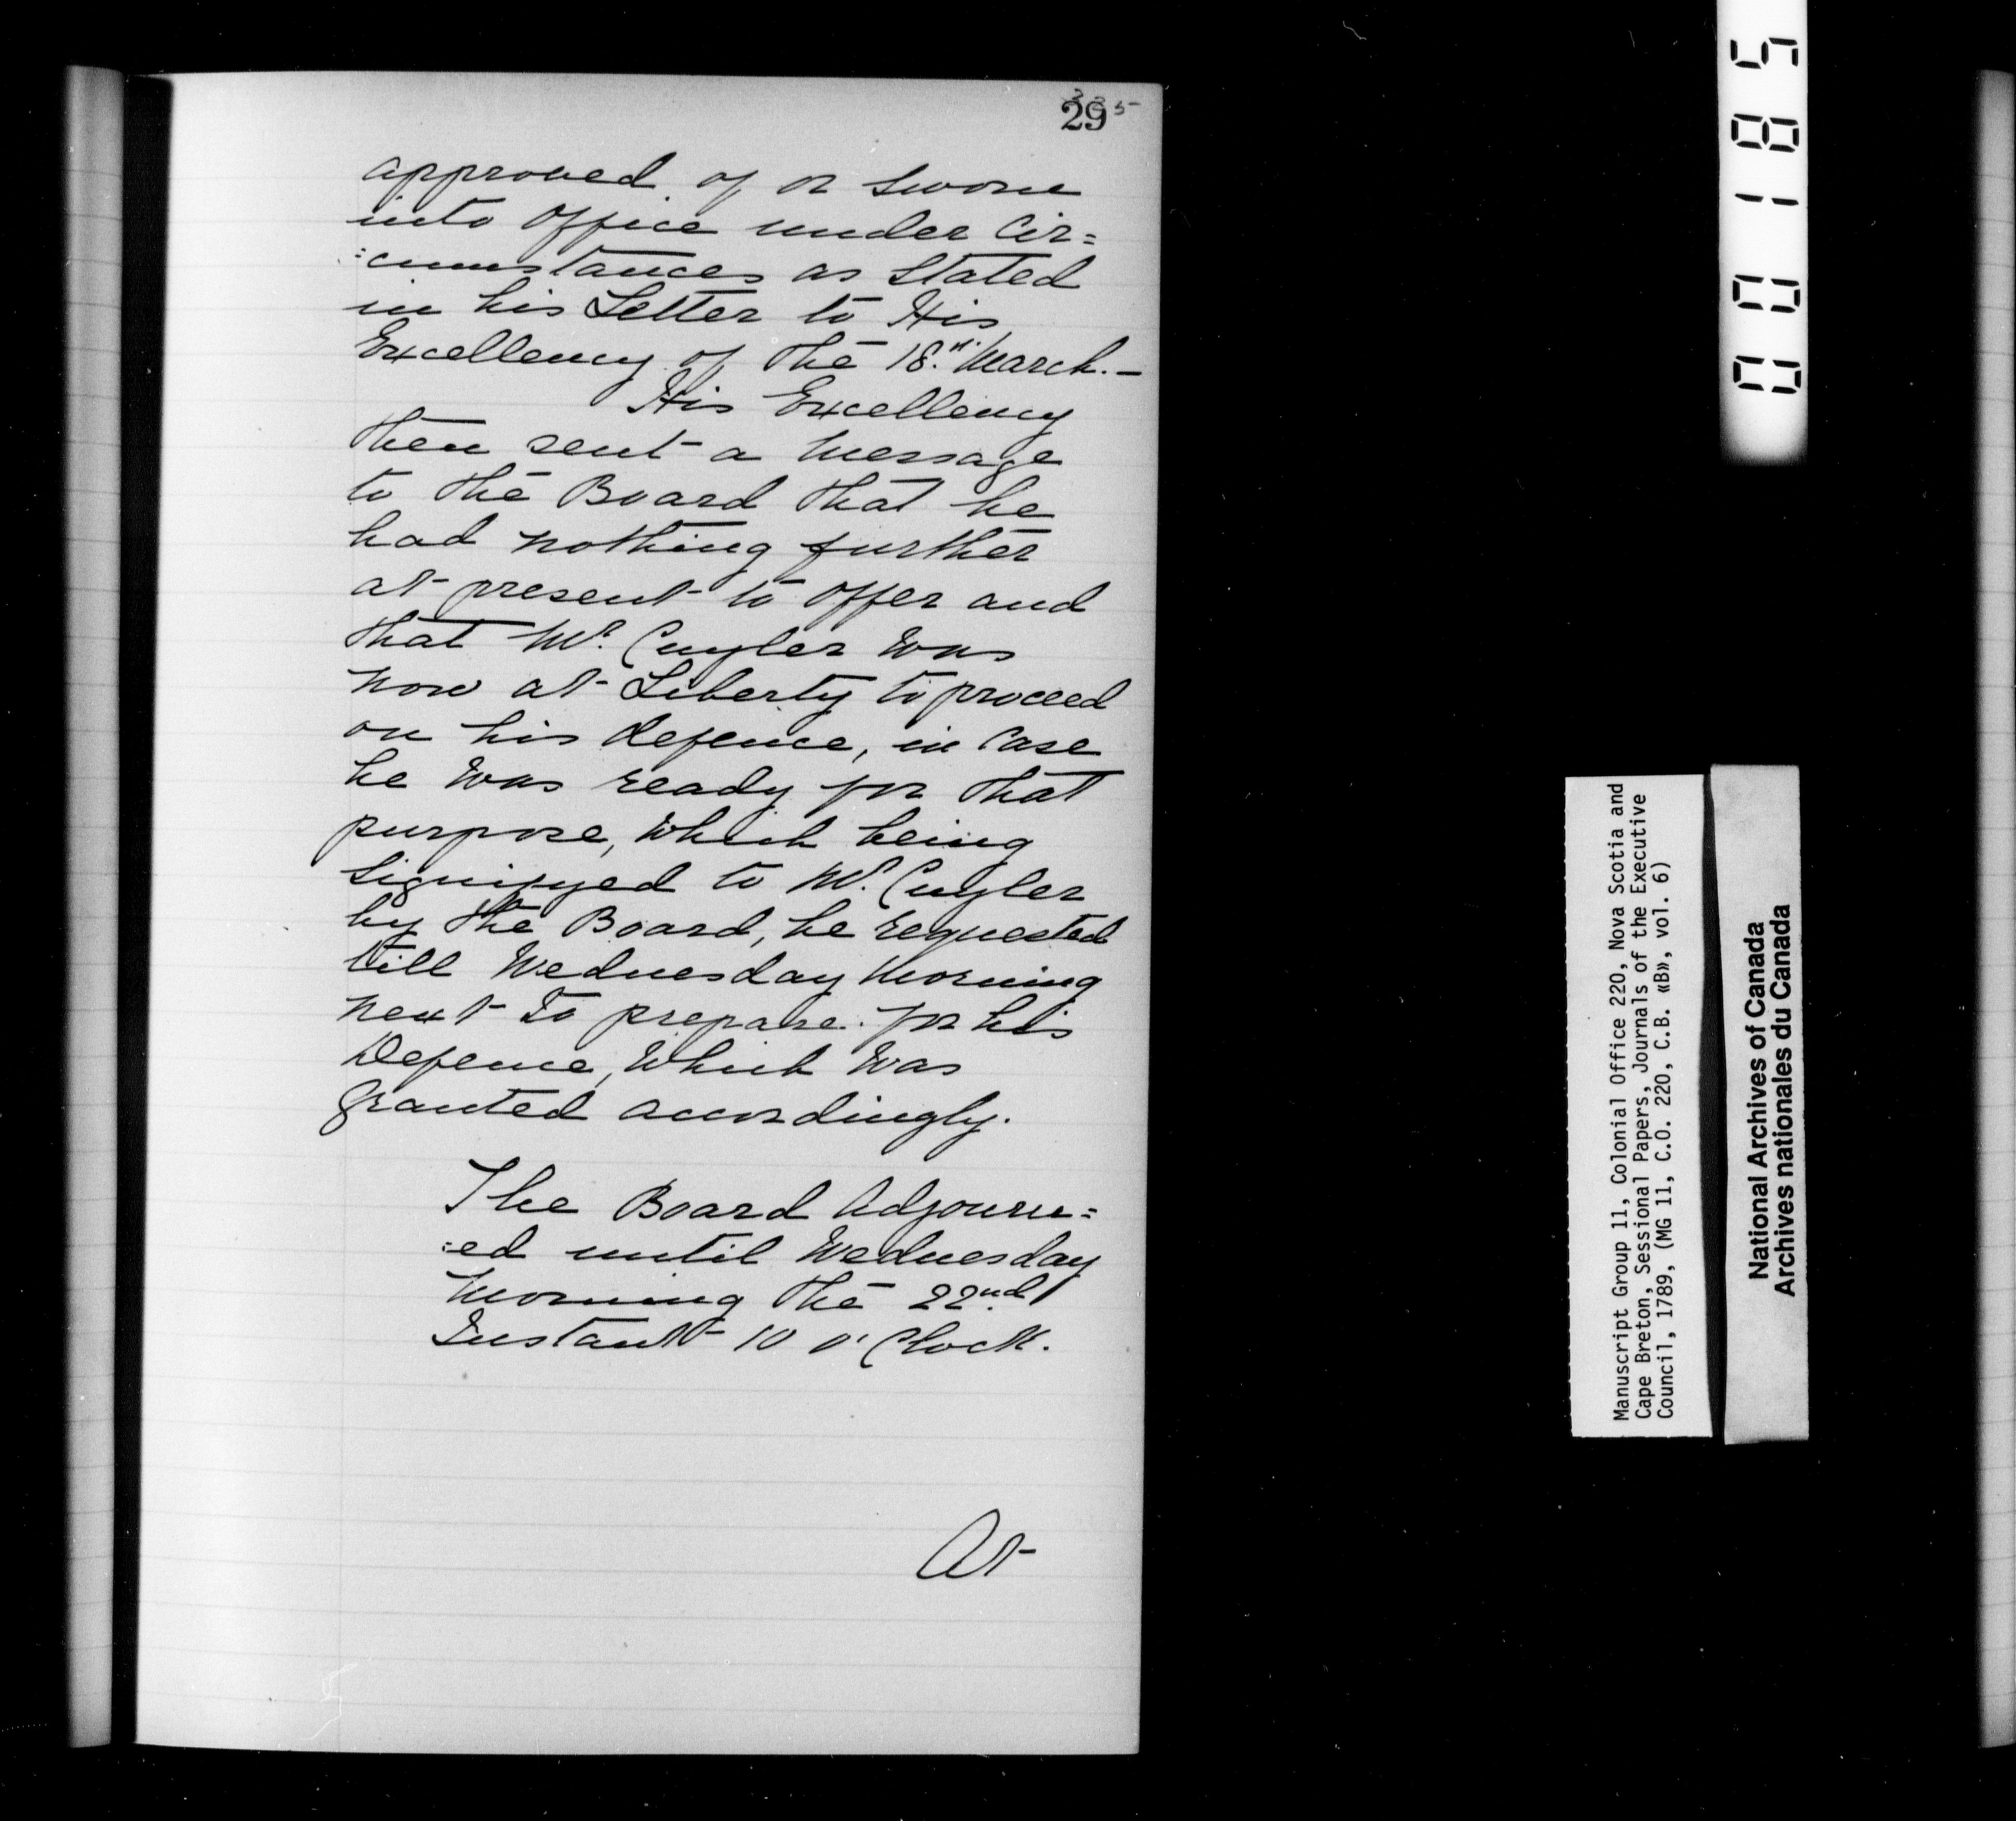 29
approved of or Sworn
into Office under Cir=
=cumstances as Stated
in his Letter to His
Excellency of the 18.th March.-
His Excellency
then sent a Message
to the Board that he
had nothing further
at present to offer and
that Mr. Cuyler was
now at Liberty to proceed
on his defence, in Case
he was ready for that
purpose, which being
Signifyed to Mr. Cuyler
by the Board, he requested
till Wednesday Morning
next to prepare for his
Defence, which was
granted accordingly.
The Board Adjourn=
=ed until Wednesday
Morning the 22nd
Instant 10 o'Clock.
At
00185
Manuscript Group 11, Colonial Office 220, Nova Scotia and
Cape Breton, Sessional Papers, Journals of the Executive
Council, 1789, (MG 11, C.O. 220, C.B. «B», vol. 6)
National Archives of Canada
Archives nationales du Canada